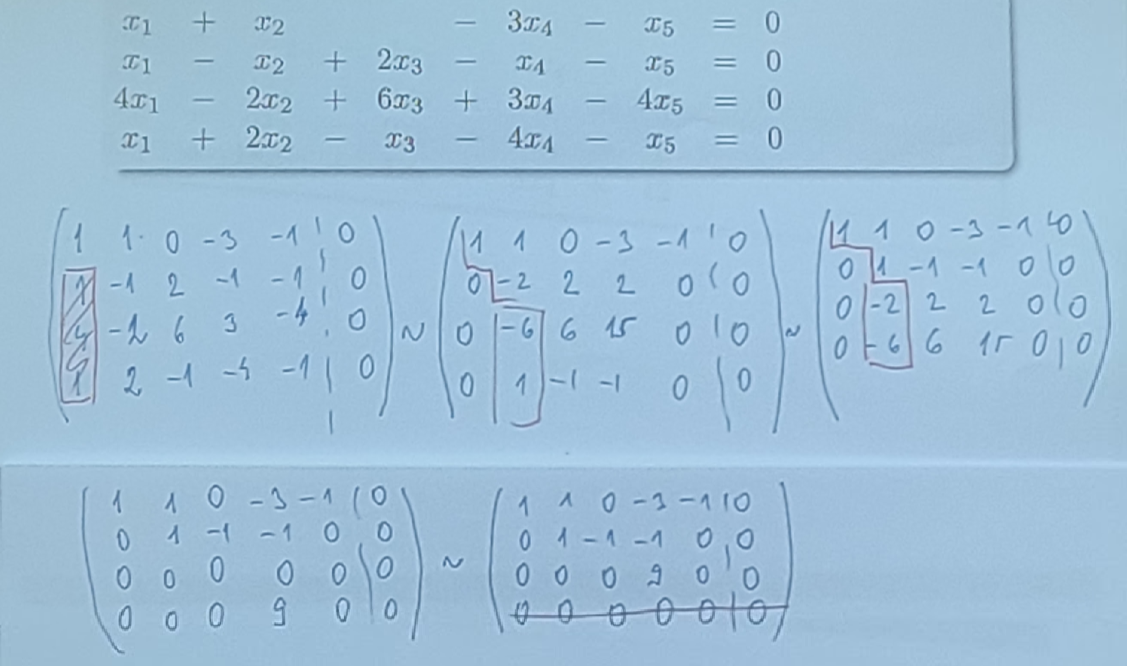 x₁ + x₂ − 3x₄ − x₅ = 0
x₁ − x₂ + 2x₃ − x₄ − x₅ = 0
4x₁ − 2x₂ + 6x₃ + 3x₄ − 4x₅ = 0
x₁ + 2x₂ − x₃ − 4x₄ − x₅ = 0
1 1 0 -3 -1 | 0
1 -1 2 -1 -1 | 0
4 -2 6 3 -4 | 0
1 2 -1 -4 -1 | 0
~
1 1 0 -3 -1 | 0
0 -2 2 2 0 | 0
0 -6 6 15 0 | 0
0 1 -1 -1 0 | 0
~
1 1 0 -3 -1 | 0
0 1 -1 -1 0 | 0
0 -2 2 2 0 | 0
0 -6 6 15 0 | 0
1 1 0 -3 -1 | 0
0 1 -1 -1 0 | 0
0 0 0 0 0 | 0
0 0 0 9 0 | 0
~
1 1 0 -3 -1 | 0
0 1 -1 -1 0 | 0
0 0 0 9 0 | 0
0 0 0 0 0 | 0